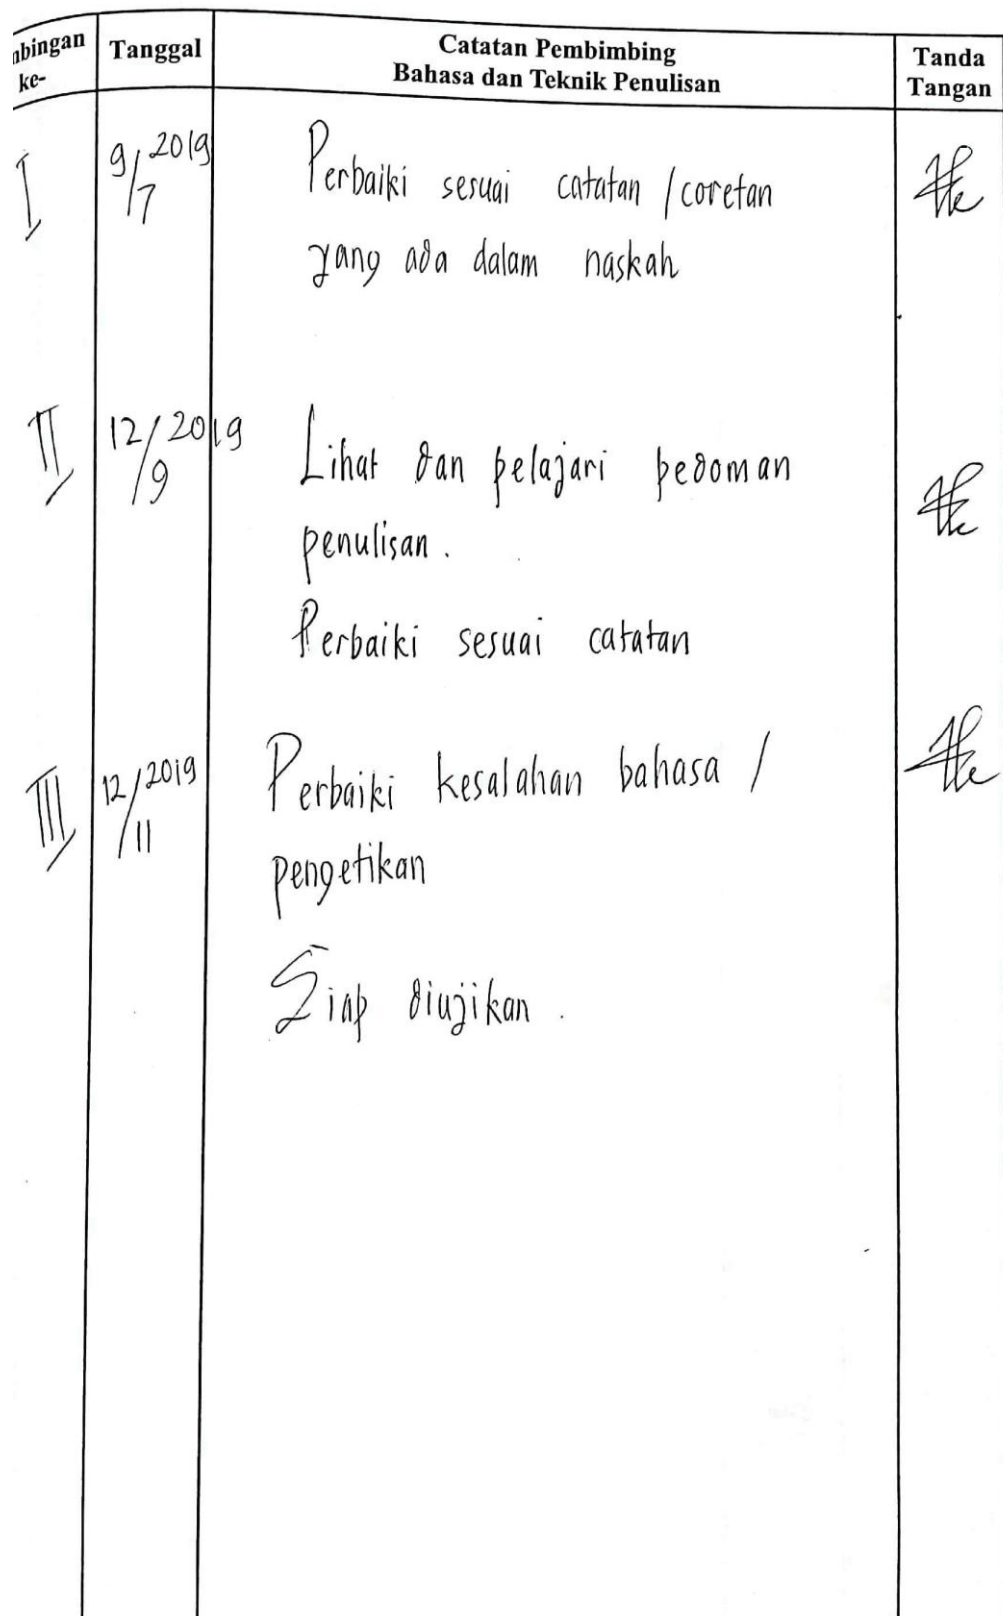 nbingan Tanggal Catatan Pembimbing Tanda
ke- Bahasa dan Teknik Penulisan Tangan
I 9/7 2019 Perbaiki sesuai catatan / coretan
yang ada dalam naskah
II 12/9 2019 Lihat dan pelajari pedoman
penulisan.
Perbaiki sesuai catatan
III 12/11 2019 Perbaiki kesalahan bahasa /
pengetikan
Siap diujikan.